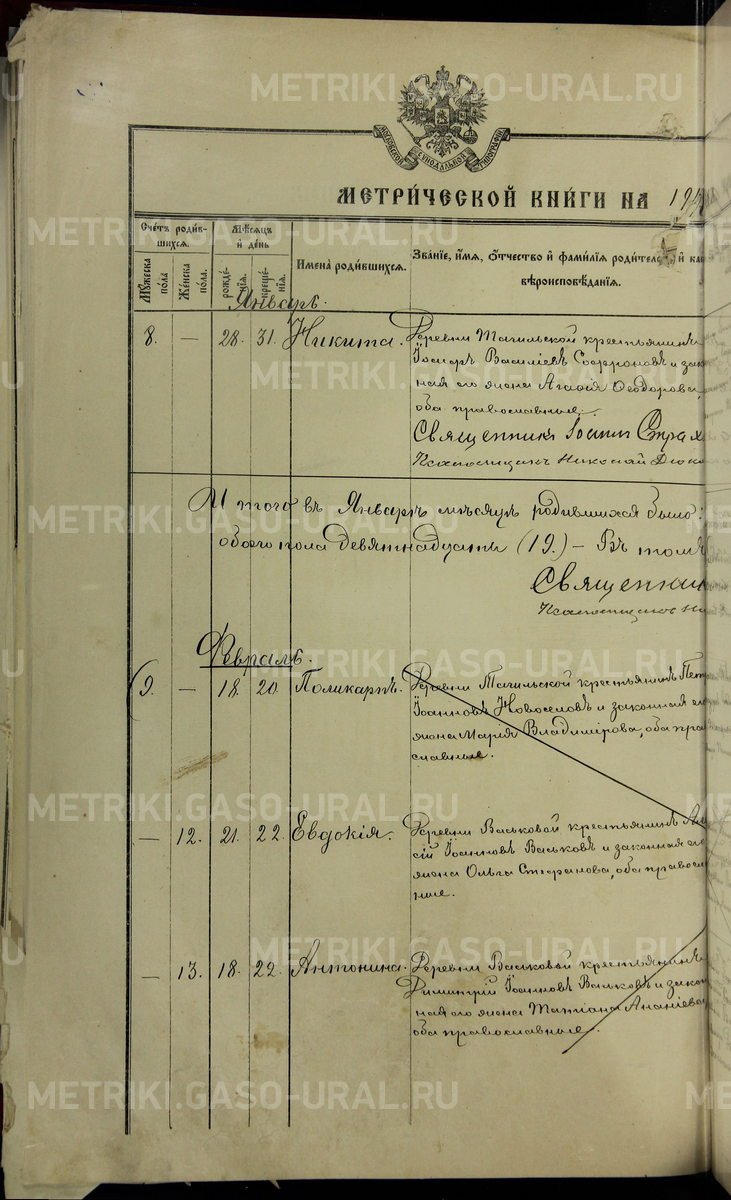 МОСКОВСКОЙ СѴНОДАЛЬНОЙ ТИПОГРАФІИ
МЕТРИ́ЧЕСКОЙ КНИ́ГИ НА 19
Сче́тъ роди́в-
шихся.
Мѣ́сяцъ
и́ де́нь
Имена̀ роди́вшихся.
Зва́нїе, и́мя, о́тчество и́ фами́лїя роди́телей, и́ как
вѣроисповѣ́данїя.
Му́жеска по́ла.
Же́нска по́ла.
рожде́нїя.
креще́нїя.
Январь.
8. — 28. 31. Никита. Деревни Тагильской крестьянинъ
Василіевъ Софроновъ и зако
ная его жена Агаѳія Ѳеодорова,
оба православные.
Священникъ Іоаннъ Страх
Псаломщикъ Николай Дюко
Итого въ Январѣ мѣсяцѣ родившихся было:
обоего пола девятнадцать (19.) — Въ томъ
Священник
Псаломщикъ Ни
Февраль.
9. — 18. 20. Поликарпъ. Деревни Тагильской крестьянинъ Пет
Іоанновъ Новоселовъ и законная его
жена Марія Владимірова, оба пра
славные.
— 12. 21. 22. Евдокія. Деревни Васьковой крестьянинъ
сій Іоанновъ Васьковъ и законная его
жена Ольга Стефанова, оба правосл
ные.
— 13. 18. 22. Антонина. Деревни Васьковой крестьянинъ
Димитрій Іоанновъ Васьковъ и закон
ная его жена Татіана Ананіева
оба православные.
METRIKI.GASO-URAL.RU